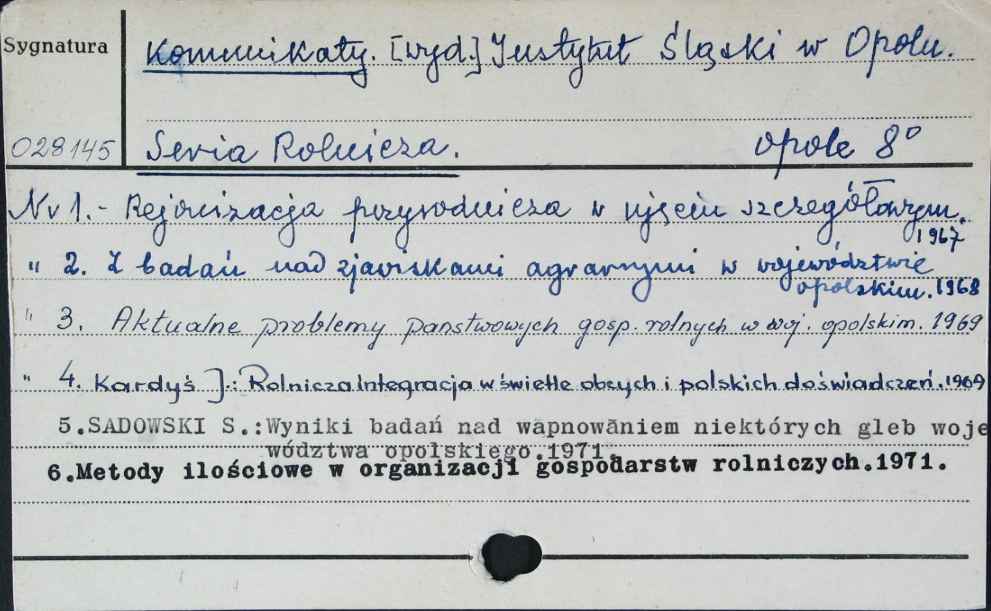 Sygnatura
Komunikaty. [wyd.] Instytut Śląski w Opolu.
028145
Seria Rolnicza. Opole 8°
Nr 1.- Rejonizacja przyrodnicza w ujęciu szczegółowym.
1967
" 2. Z badań nad zjawiskami agrarnymi w województwie
opolskim. 1968
" 3. Aktualne problemy państwowych gosp. rolnych w woj. opolskim. 1969
" 4. Kardyś J.: Rolnicza integracja w świetle obcych i polskich doświadczeń. 1969
5.SADOWSKI S.:Wyniki badań nad wapnowaniem niektórych gleb woje
wództwa opolskiego.1971.
6.Metody ilościowe w organizacji gospodarstw rolniczych.1971.